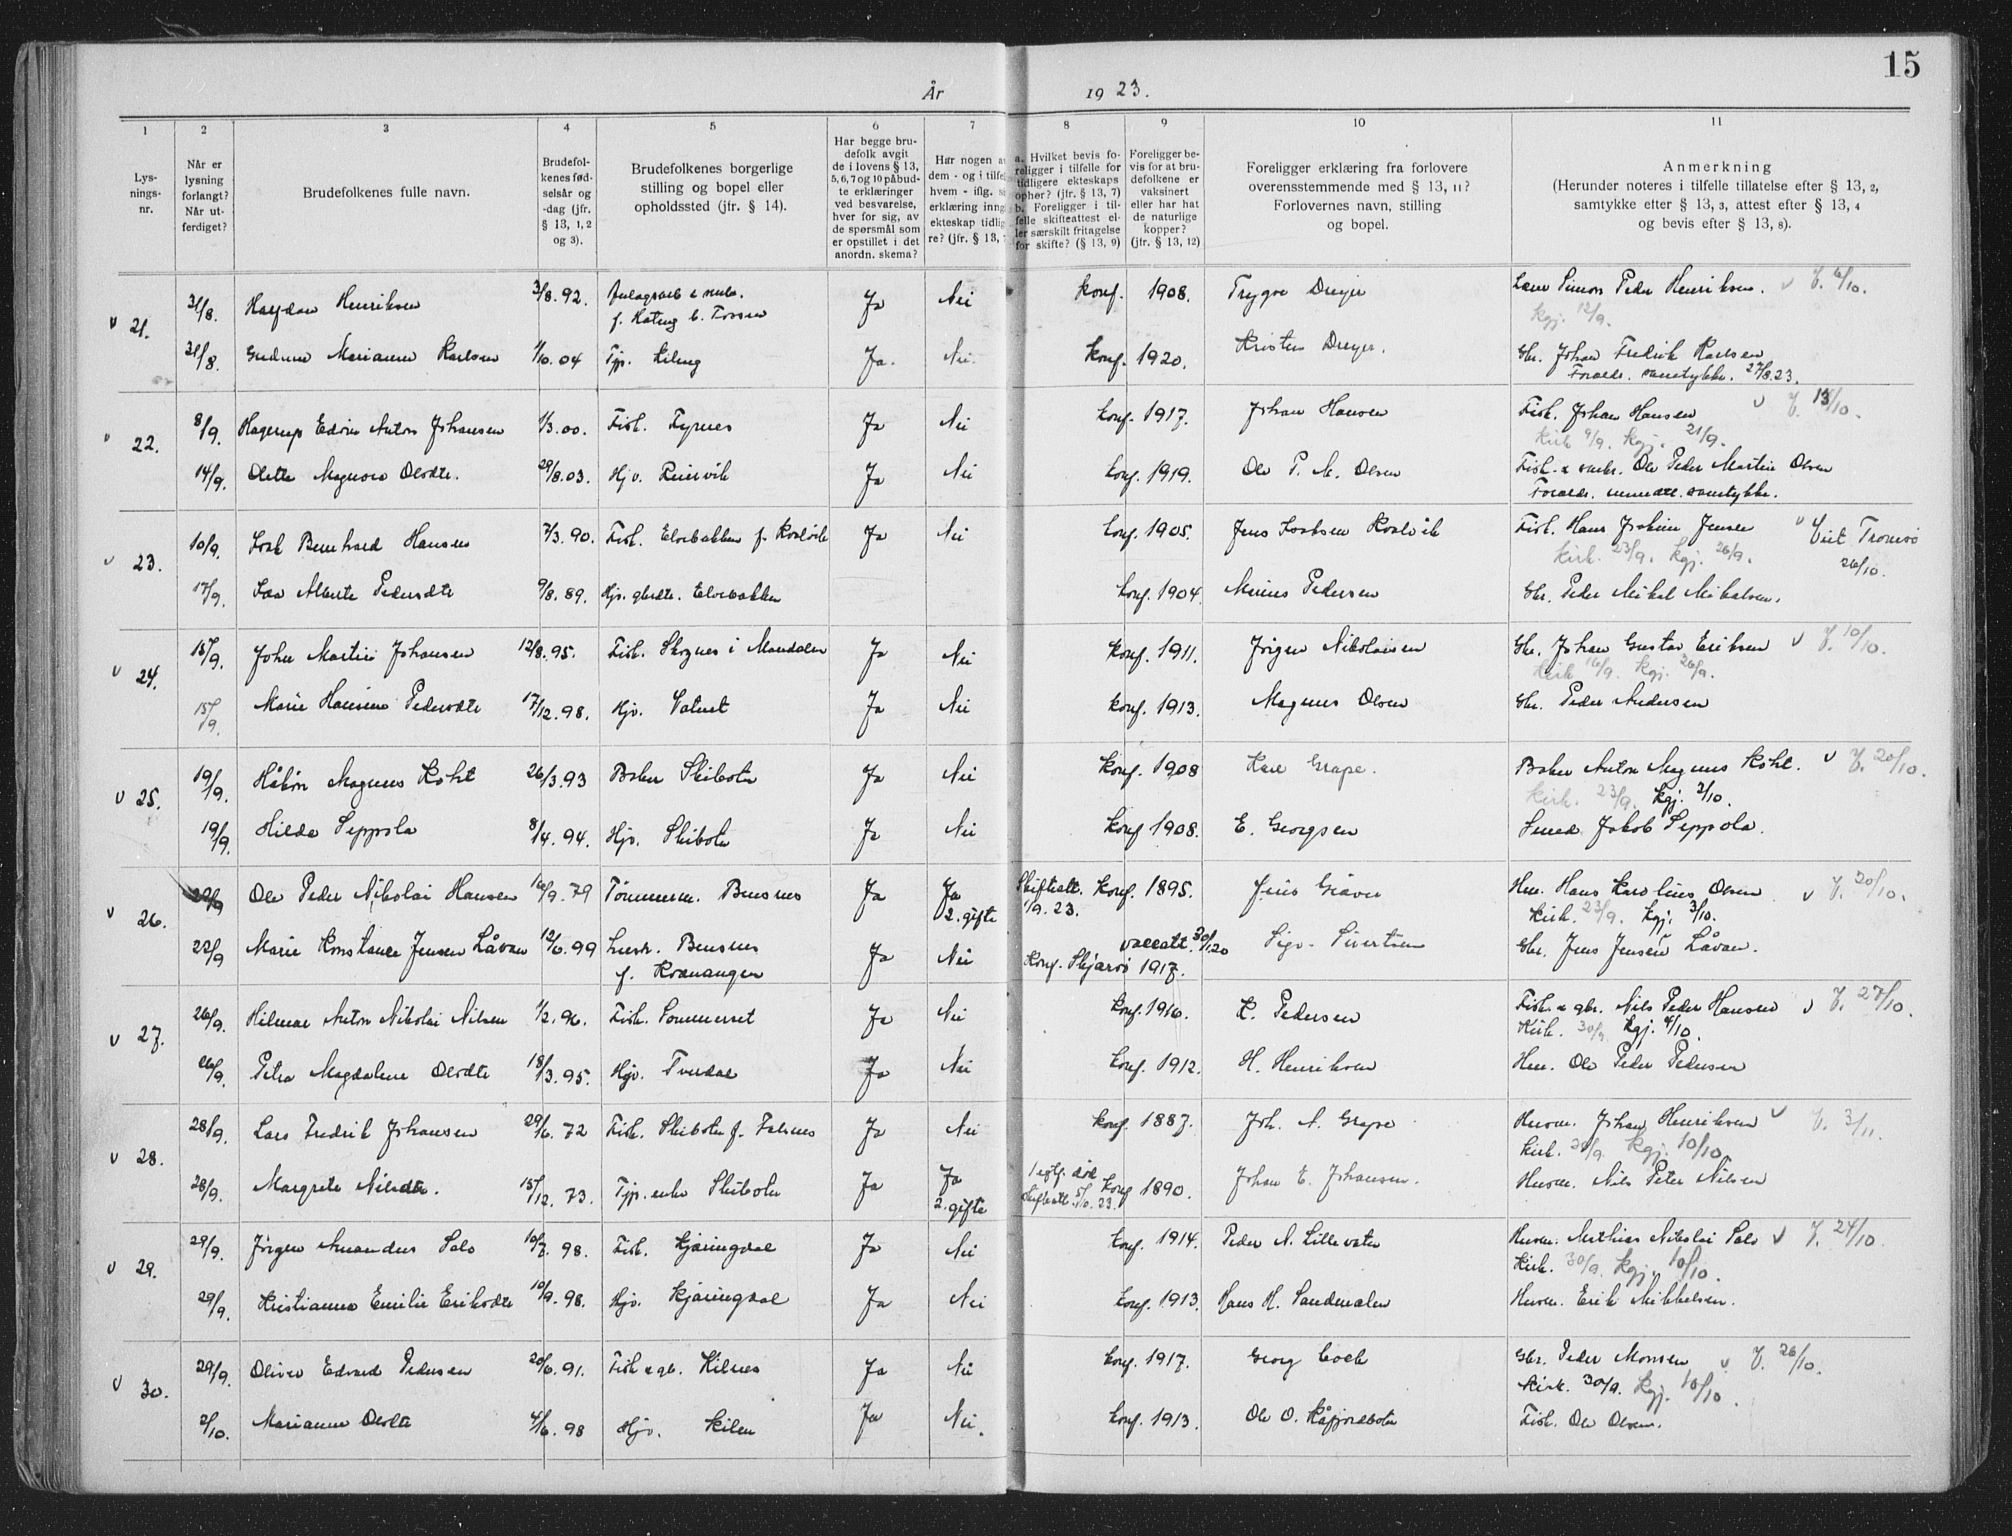 15
År 1923.
1 2 3 4 5 6 7 8 9 10 11
Lys-
nings-
nr.
Når er
lysning
forlangt?
Når ut-
ferdiget?
Brudefolkenes fulle navn.
Brudefol-
kenes fød-
selsår og
-dag (jfr.
§ 13, 1, 2
og 3).
Brudefolkenes borgerlige
stilling og bopel eller
opholdssted (jfr. § 14).
Har begge bru-
defolk avgit
de i lovens § 13,
5, 6, 7 og 10 påbud-
te erklæringer
ved besvarelse,
hver for sig, av
de spørsmål som
er opstillet i det
anordn. skema?
Har nogen a
dem - og i tilfel
hvem - iflg. s
erklæring inng
ekteskap tidlig
re? (jfr. § 13, 7
a. Hvilket bevis fo-
religger i tilfelle for
tidligere ekteskaps
ophør? (jfr. § 13, 7)
b. Foreligger i til-
felle skifteattest el-
ler særskilt fritagelse
for skifte? (§ 13, 9)
Foreligger be-
vis for at bru-
defolkene er
vaksinert
eller har hat
de naturlige
kopper?
(jfr. § 13, 12)
Foreligger erklæring fra forlovere
overensstemmende med § 13, 11?
Forlovernes navn, stilling
og bopel.
Anmerkning
(Herunder noteres i tilfelle tillatelse efter § 13, 2,
samtykke efter § 13, 3, attest efter § 13, 4
og bevis efter § 13, 8).
v 21. 31/8. Halfdan Henriksen 3/8.92. Ja Nei Konf. 1908. Trygve Dreyer Simon Peder Henriksen. v V. 6/10.
kgj. 12/9.
31/8. Gudrun Marianne Karlsen 1/10.04 Ja. Nei. Konf. 1920. Kristen Dreyer. Gbr. Johan Fredrik Karlsen
Foreldr. samtykke. 27/8.23.
v 22. 8/9. Hagerup Edvin Anton Johansen 1/3.00. Fisk. Ja Nei konf. 1917. Johan Hansen Fisk. Johan Hansen v V. 13/10.
Kirk 9/9. kgj. 21/9.
14/9. Oletta Magnora Olsdtr. 29/8.03. Hjv. Ja Nei konf. 1919. Ole P. M. Olsen Ole Peder Martin Olsen
Foreldr. samtykke.
v 23. 10/9. Isak Bernhard Hansen 7/3.90. Fisk. Elvebakken f. Kvalvik Ja Nei konf. 1905. Jens Isaksen Kvalvik Fisk. Hans Joakim Jensen v Viet Tromsø
Kirk. 23/9. kgj. 26/9. 26/10.
17/9. 9/8.89. Hjv. gbrdtr. Elvebakken konf. 1904. Marius Pedersen Gbr. Peder Mikal Mikalsen.
v 24. 15/9. John Martin Johansen 12/8.95. Fisk. Skognes i Mandalen Ja Nei konf. 1911. Jörgen Nikolaisen Gbr. Johan Gustav Eriksen v V. 10/10.
Kirk 16/9. kgj. 26/9.
15/9. Marie Hansine Pedersdtr 17/12.98. Hjv. Ja Nei konf. 1913. Magnus Olsen Gbr. Peder Andersen
v 25. 19/9. Håkon Magnus Koht 26/3.93 Baker Skibotn Ja Nei Konf. 1908 Karl Grape. Baker Anton Magnus Koht. v V. 20/10.
Kirk. 23/9. kgj. 2/10.
19/9. Hilda Seppola 8/4.94. Hjv. Skibotn Ja Nei konf 1908. E. Georgsen Smed Jakob Seppola.
v 26. 22/9 Ole Peder Nikolai Hansen 16/9.79 Tömmerm. Bensnes Ja Ja Skifteatt. konf. 1895. Jens Giæver Hm. Hans Karolius Olsen v V. 20/10.
2. gifte 1/9.23. Kirk. 23/9. kgj. 3/10.
22/9 Marie Konstance Jensen Låvan 12/6.99 Bensnes Ja Nei vaccatt. 30/1.20 Sigv. Sivertsen Gbr. Jens Jensen Låvan.
f. Kvænangen Konf. Skjærvö 1917.
v 27. 26/9. Hilmar Anton Nikolai Nilsen 1/2.96. Fisk. Sommerset Ja Nei konf. 1910. K. Pedersen Fisk. & gbr. Nils Peder Hansen v V. 27/10.
Kirk. 30/9 kgj. 4/10.
26/9. Petra Magdalene Olsdtr 18/3.95. Hjv. Tverdal Ja Nei konf. 1912. H. Henriksen Hm. Ole Peder Pedersen
v 28. 28/9. Lars Fredrik Johansen 29/6.72 Fisk. Skibotn f. Falsnes Ja Nei konf. 1887. Joh. A. Grape Husm. Johan Henriksen v V. 3/11.
Kirk. kgj. 10/10
28/9. Margrete Nilsdtr. 15/12.73. Tjp. enke Skibotn Ja Ja 1. egtf. död konf 1890. Johan E. Johansen. Husm. Nils Peter Nilsen
2. gifte
v 29. 29/9. Jörgen Amandus Salo 10/7.98. Fisk. Kjæringdal Ja Nei konf. 1914. Peder N. Lillevatn Husm. Mathias Nikolai Salo v V. 24/10
Kirk. 30/9. kgj. 10/10.
29/9. Kristianna Emilie Eriksdtr 10/9.98. Hjv. Kjæringdal Ja Nei konf. 1913. Hans H. Sandemalen Husm. Erik Mikkelsen.
v 30. 29/9. Oliver Edvard Pedersen 20/6.91. Fisk & gb. Kilnes Ja Nei konf. 1917. Georg Gbr. Peder Monsen v V. 26/10.
Kirk. 30/9. kgj. 10/10.
2/10. Marianne Olsdtr 4/6.98 Hjv. Kilen Ja Nei. konf. 1913. Ole O. Kåfjordbotn Fisk. Ole Olsen.